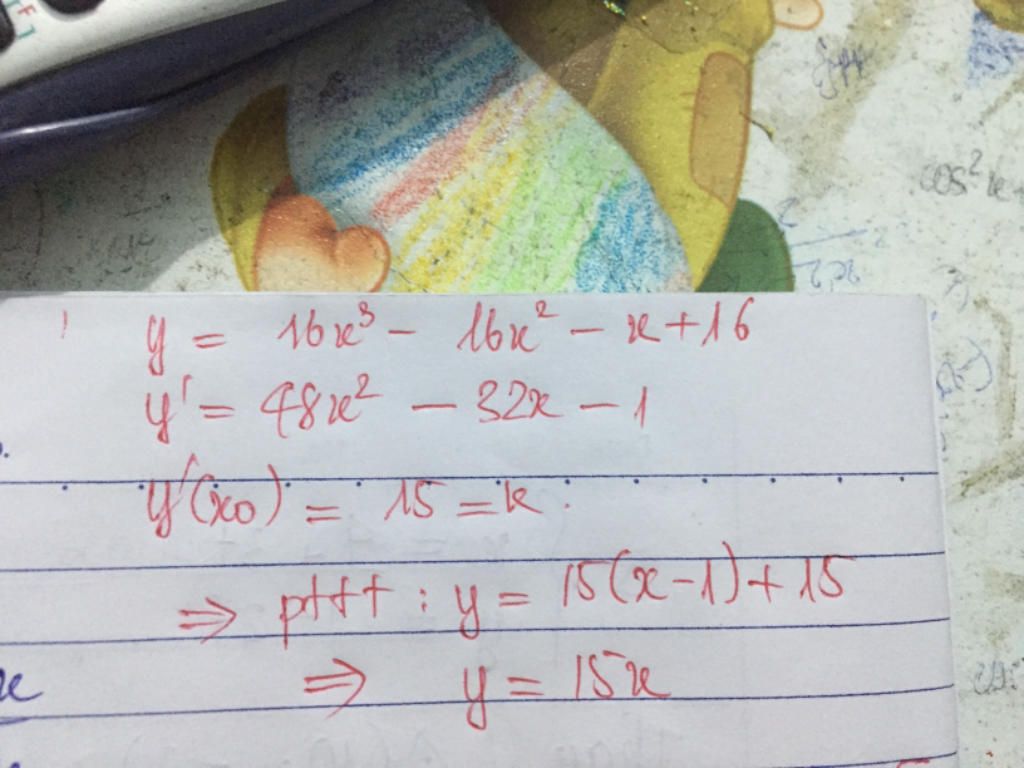 cos²x
y = 16x³ - 16x² - x + 16
y' = 48x² - 32x - 1
y'(x₀) = 15 = k.
⇒ pttt : y = 15(x-1) + 15
⇒ y = 15x
x